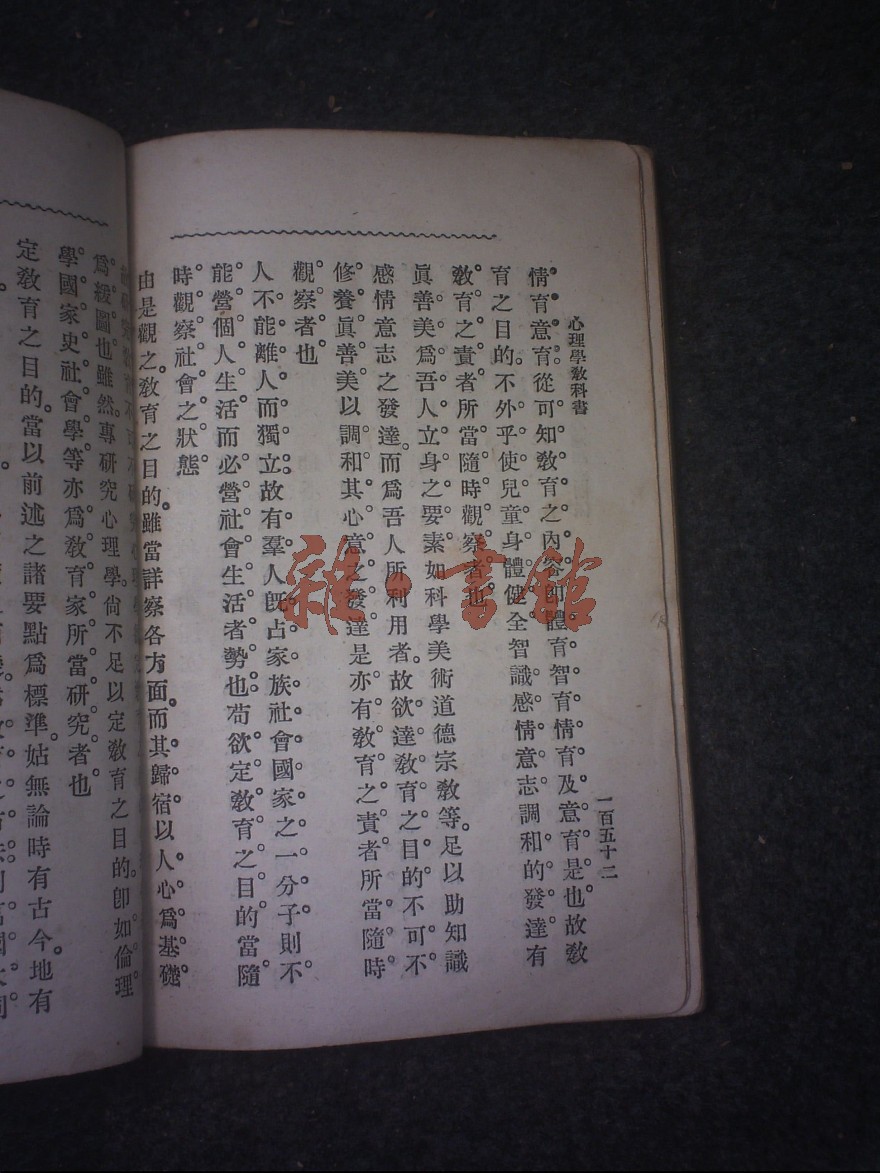 心理學敎科書
一百五十二
情育意育從可知敎育之內容卽體育智育情育及意育是也故敎
育之目的不外乎使兒童身體健全智識感情意志調和的發達有
敎育之責者所當隨時觀察者也
眞善美爲吾人立身之要素如科學美術道德宗敎等足以助知識
感情意志之發達而爲吾人所利用者故欲達敎育之目的不可不
修養眞善美以調和其心意之發達是亦有敎育之責者所當隨時
觀察者也
人不能離人而獨立故有羣人旣占家族社會國家之一分子則不
能營個人生活而必營社會生活者勢也苟欲定敎育之目的當隨
時觀察社會之狀態
由是觀之敎育之目的雖當詳察各方面而其歸宿以人心爲基礎
爲緩圖也雖然專研究心理學尙不足以定敎育之目的卽如倫理
學國家史社會學等亦爲敎育家所當研究者也
定敎育之目的當以前述之諸要點爲標準姑無論時有古今地有
雜·書館